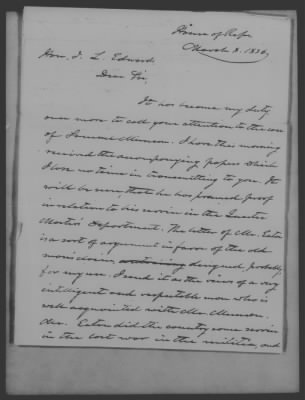 House of Reps
March 2. 1836,
Hon. J. L. Edwards
Dear Sir,
It has become my duty
once more to call your attention to the case
of Munson. I have this morning
received the accompanying papers which
I lose no time in transmitting to you. It
will be seen, that he has procured proof
in relation to his service in the Quarter
Master's Department. The letter of Mr. Eaton
is a sort of argument in favor of the old
man's claim, designed, probably,
for my use. I send it as the views of a very
intelligent and respectable man who is
well acquainted with Mr. Munson.
Mr. Eaton did the country some service
in the last war in the militia, and